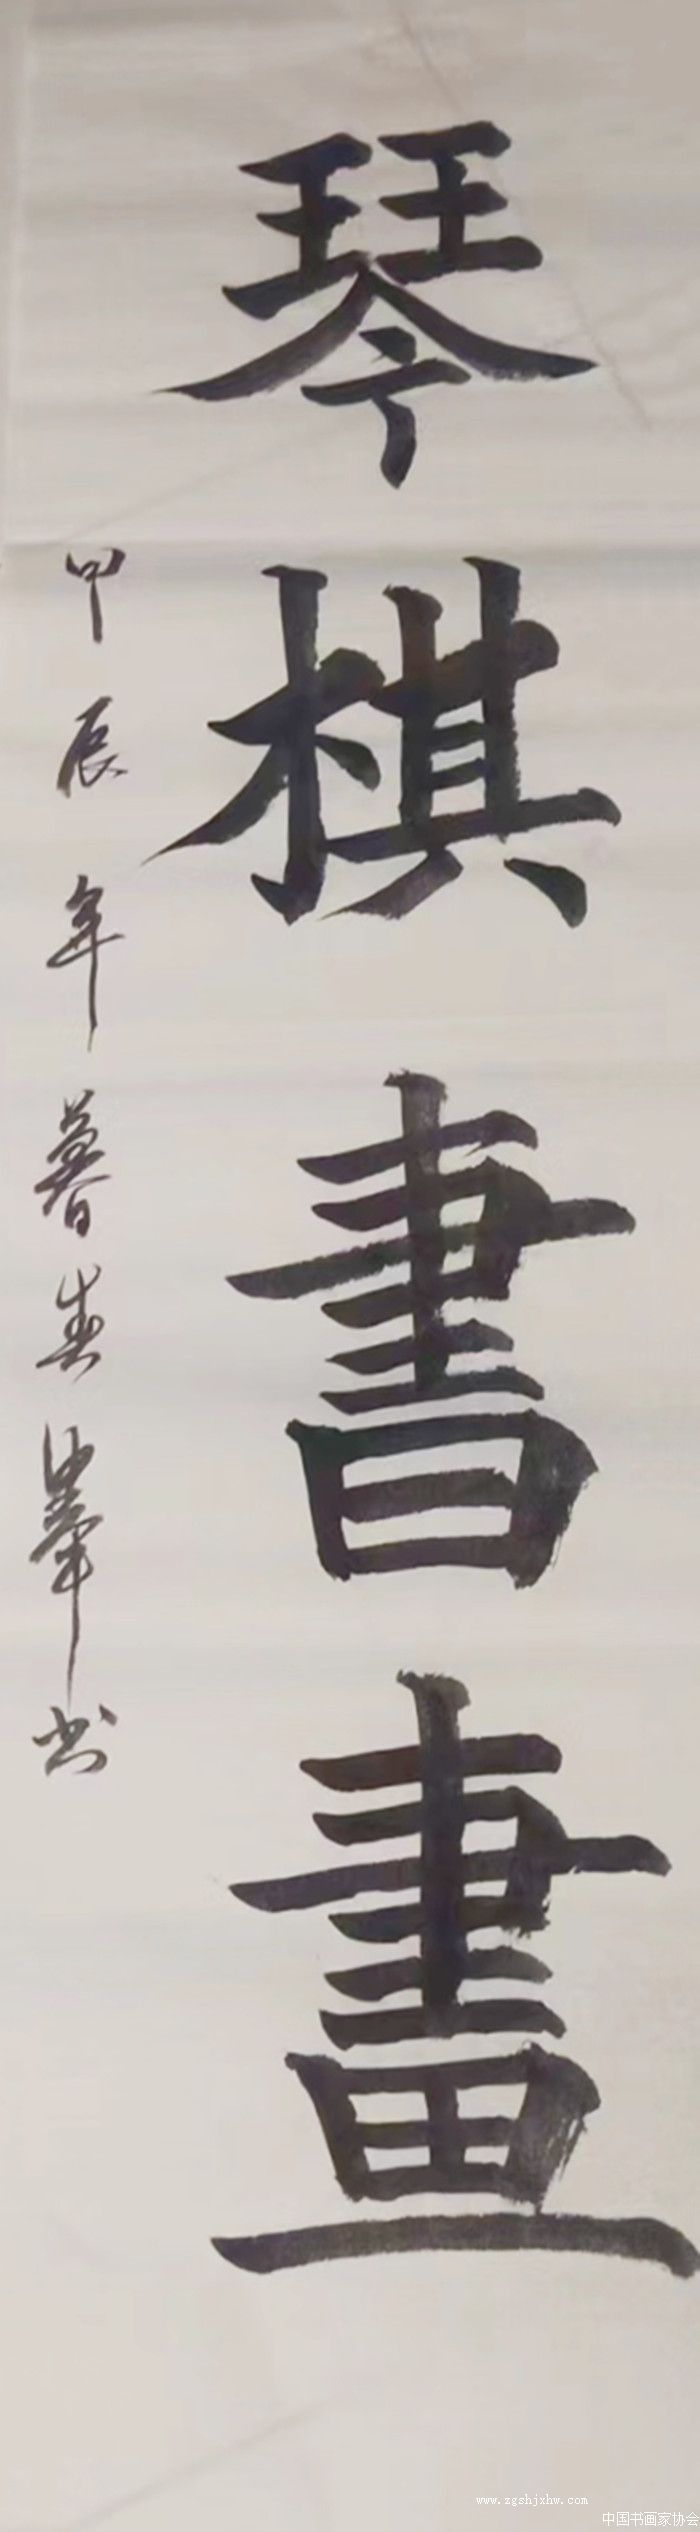 琴棋書畫
甲辰年暮春肇书
www.zgshjxhw.com
中国书画家协会